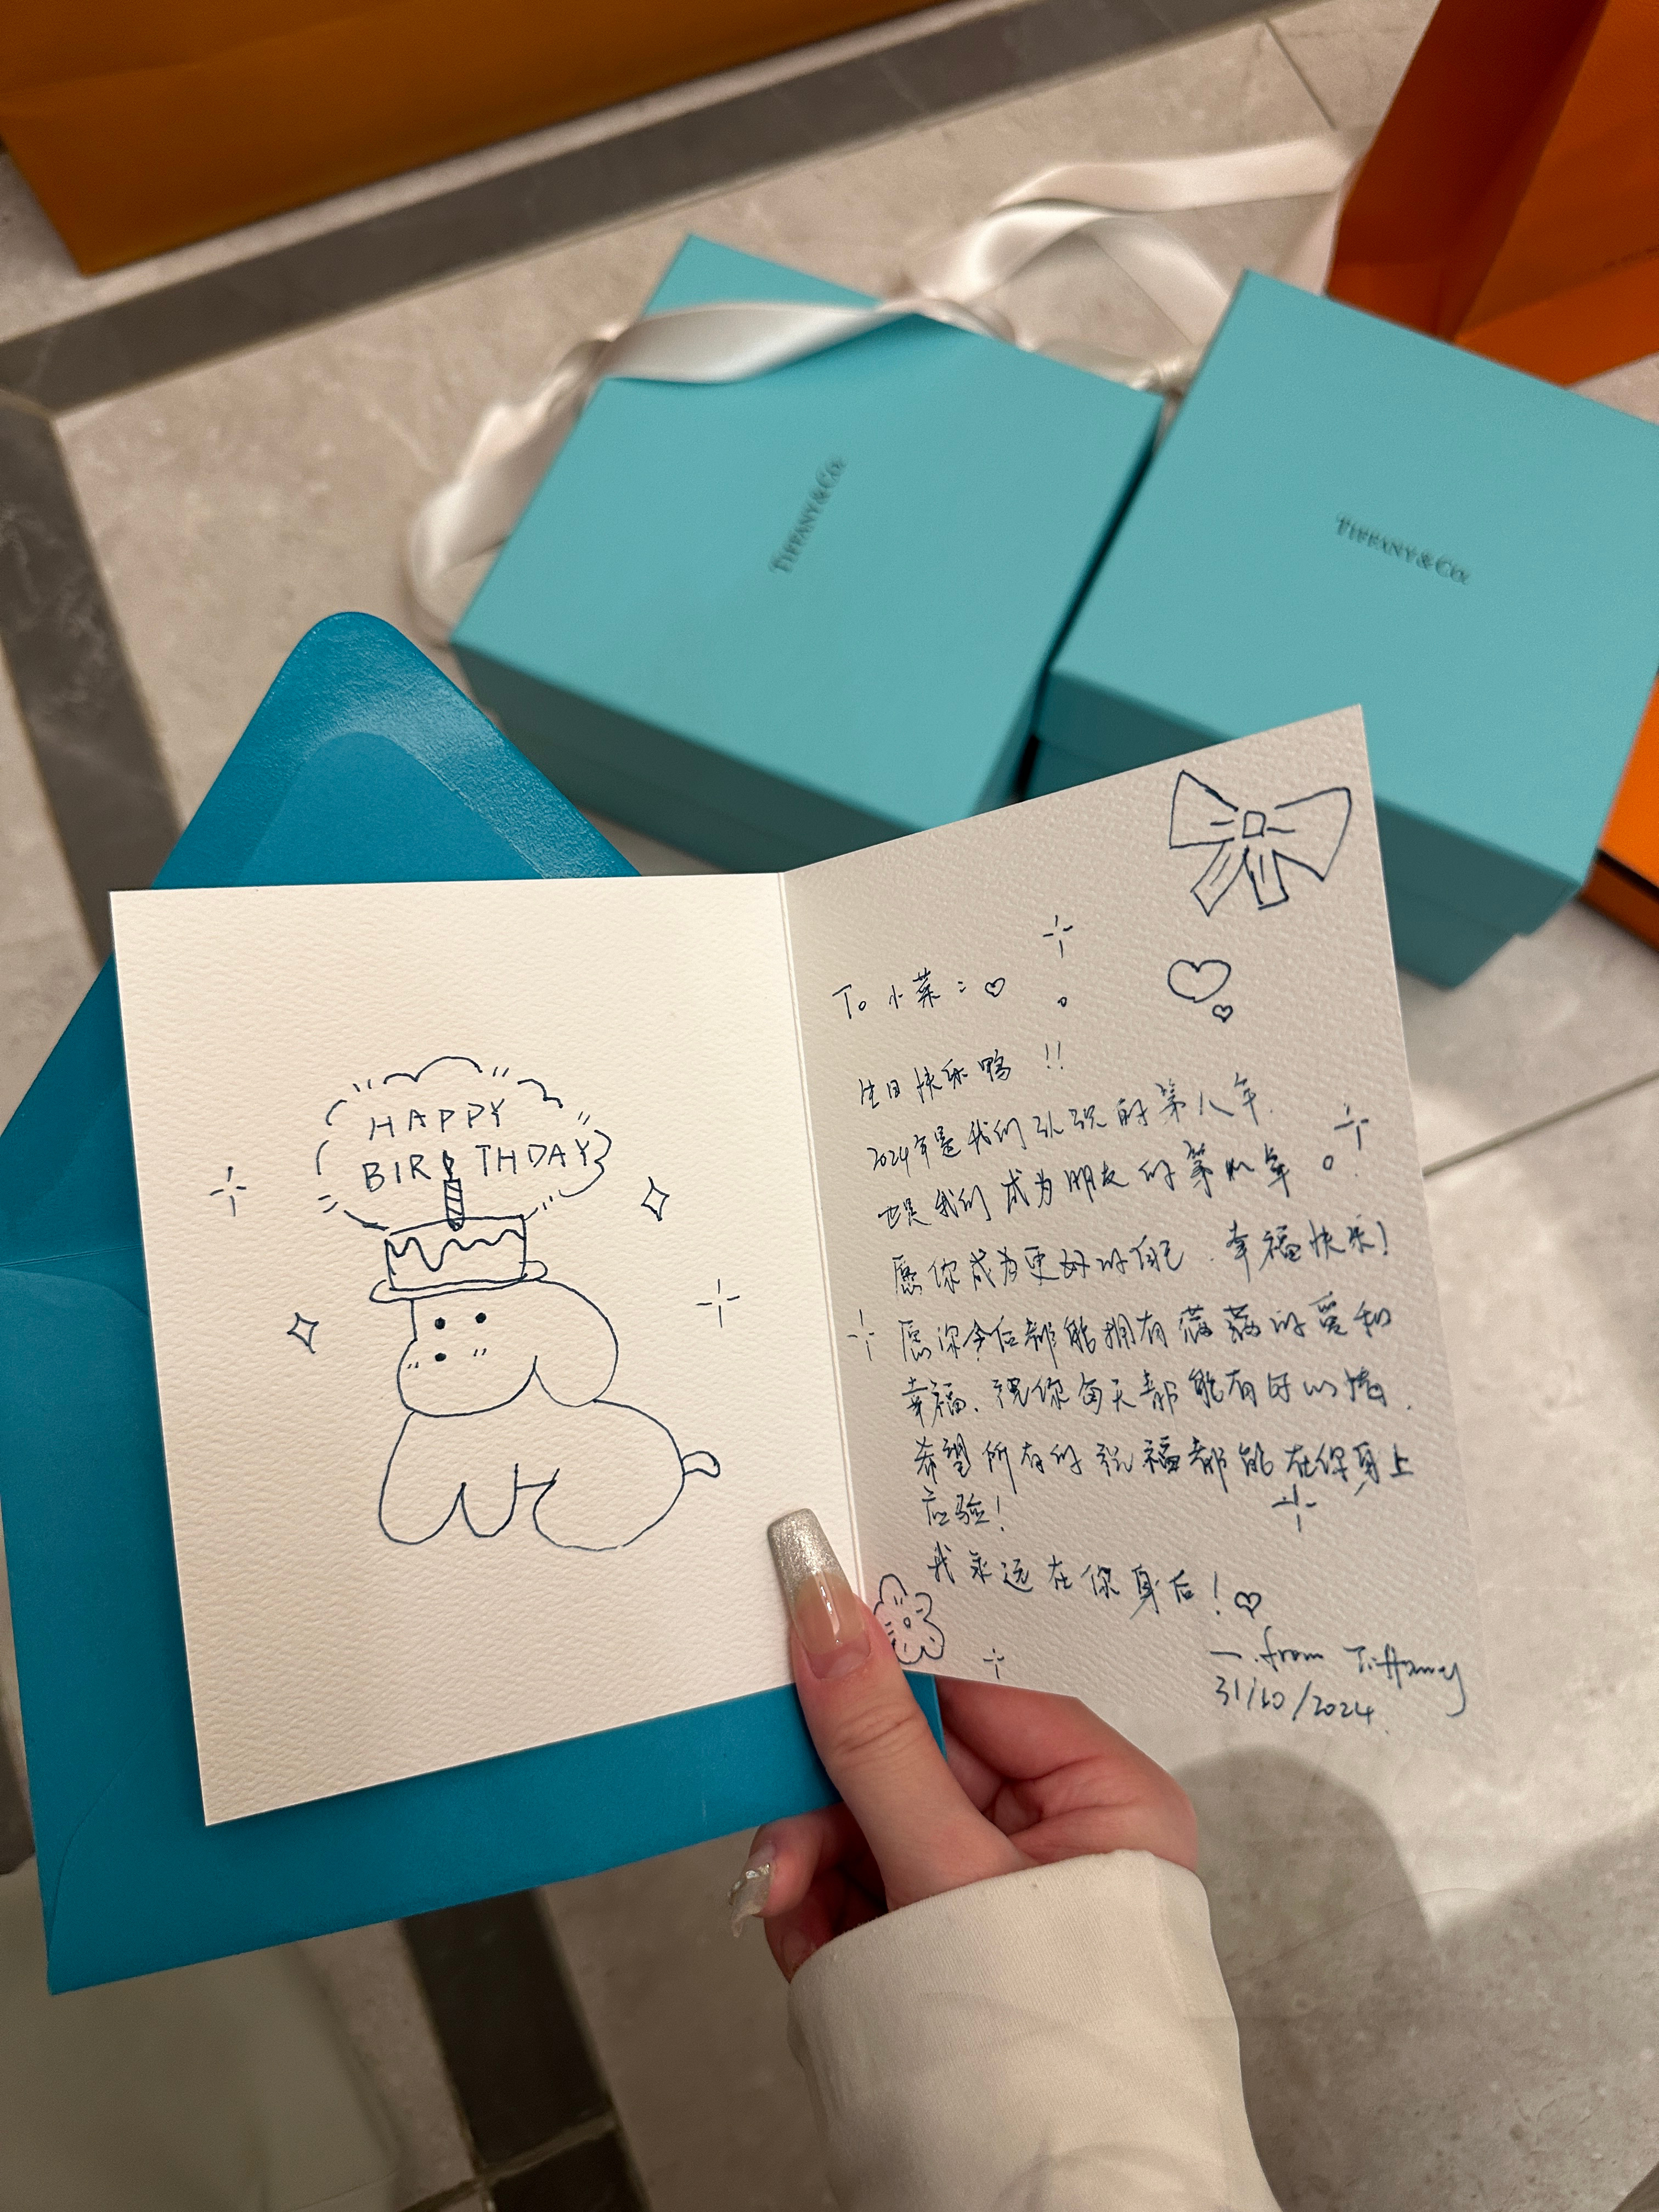 TIFFANY & CO.
TIFFANY & CO.
HAPPY
BIRTHDAY
To 小菜：
生日快乐鸭 !!
2024年是我们认识的第八年
也是我们成为朋友的第 年
愿你成为更好的自己、幸福快乐！
愿你 都能拥有满满的爱和
幸福、祝你每天都能有好心情.
希望所有的祝福都能在你身上
应验！
我永远在你身后！
— from Tiffany
31/10/2024.